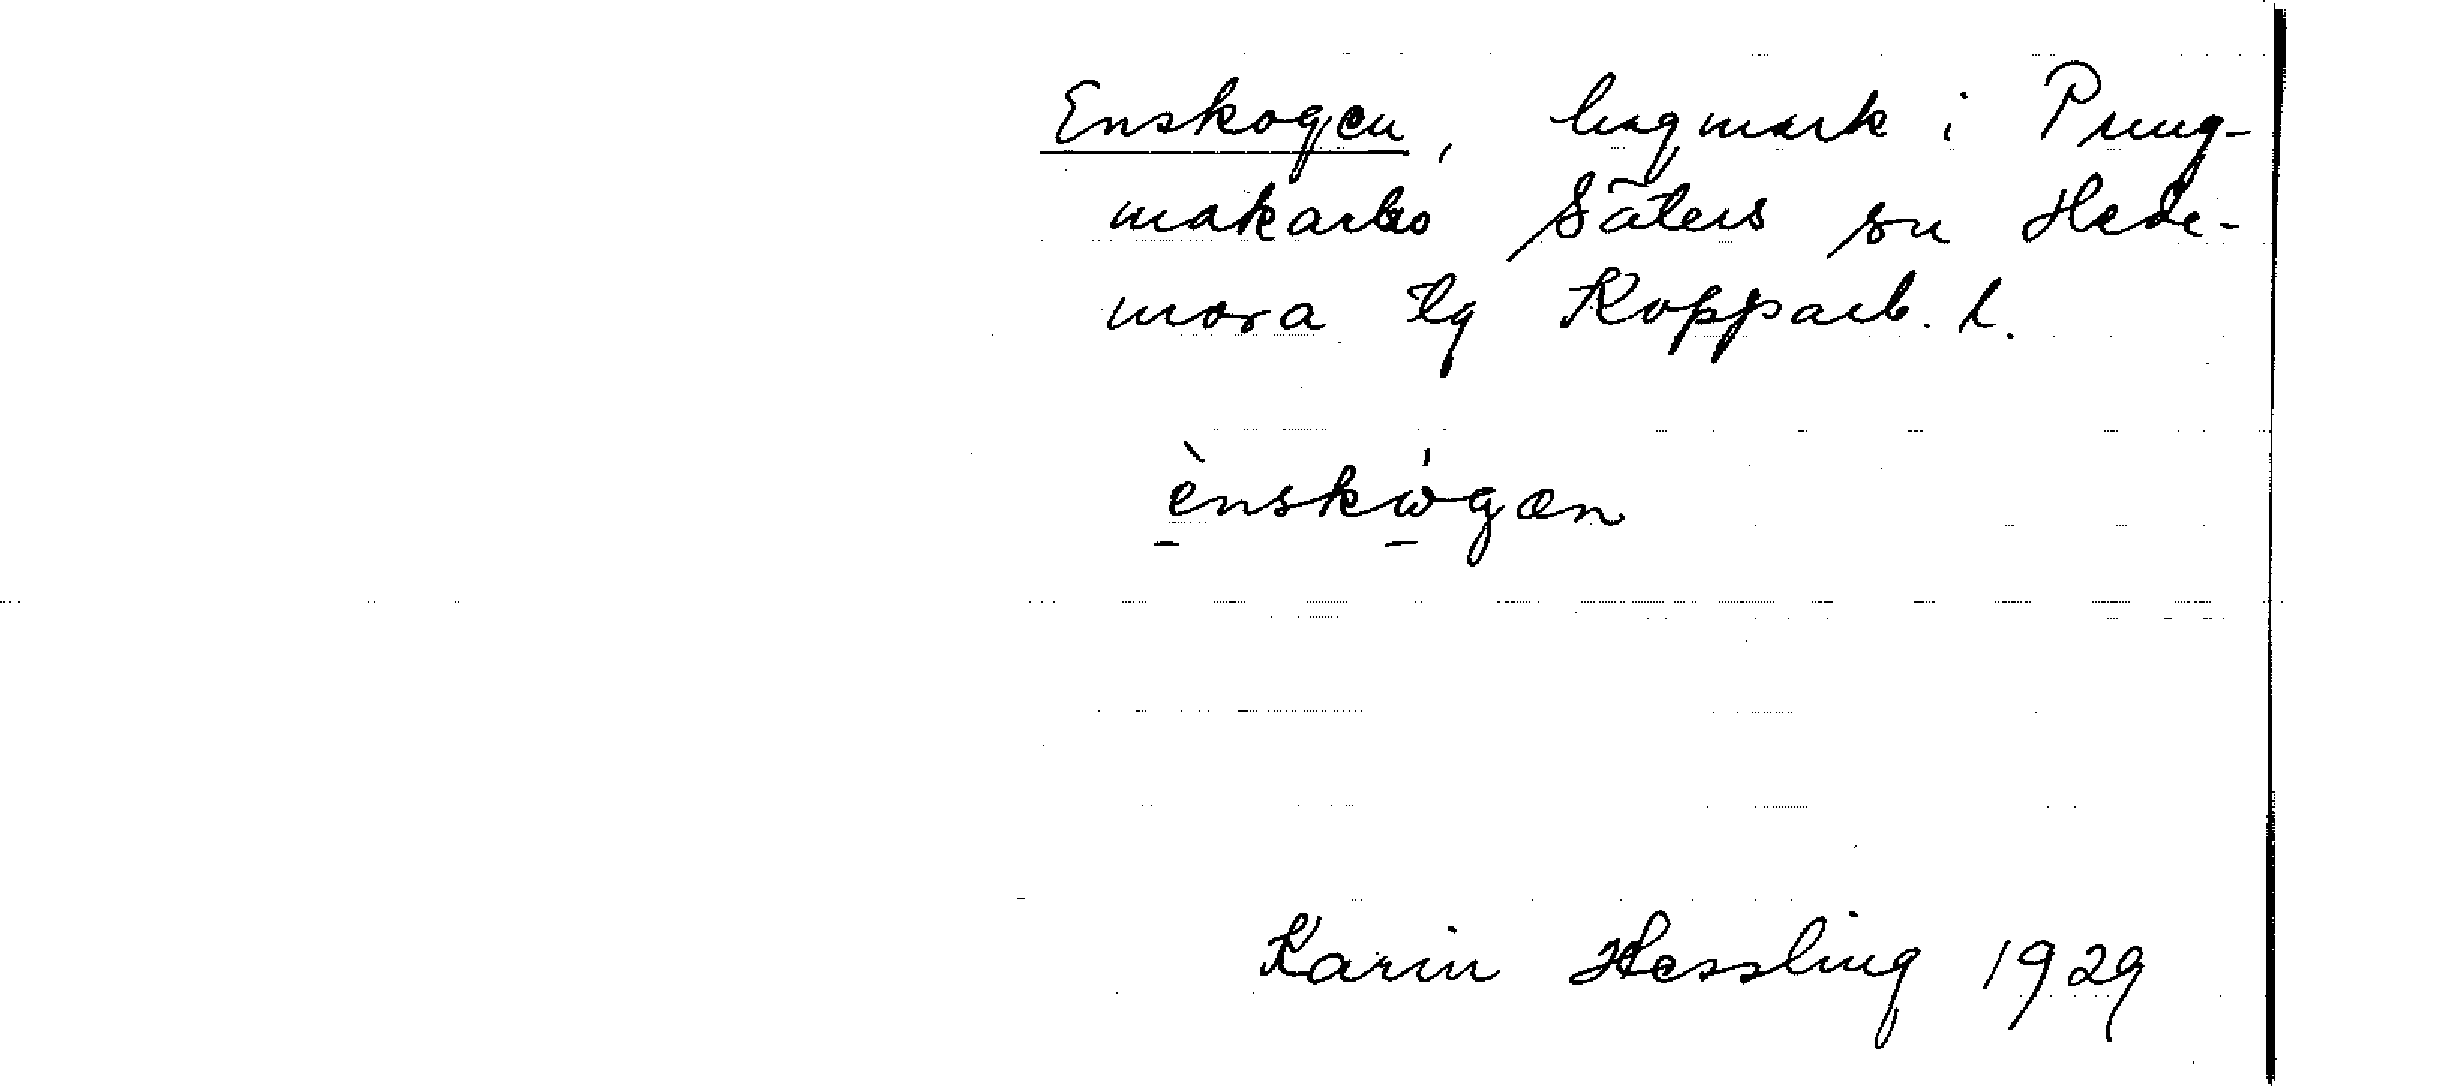 Enskogen, hagmark i Pung-
makarbo Säters sn Hede-
mora tg Kopparb. L.
ènskωgæn
Karin Hessling 1929